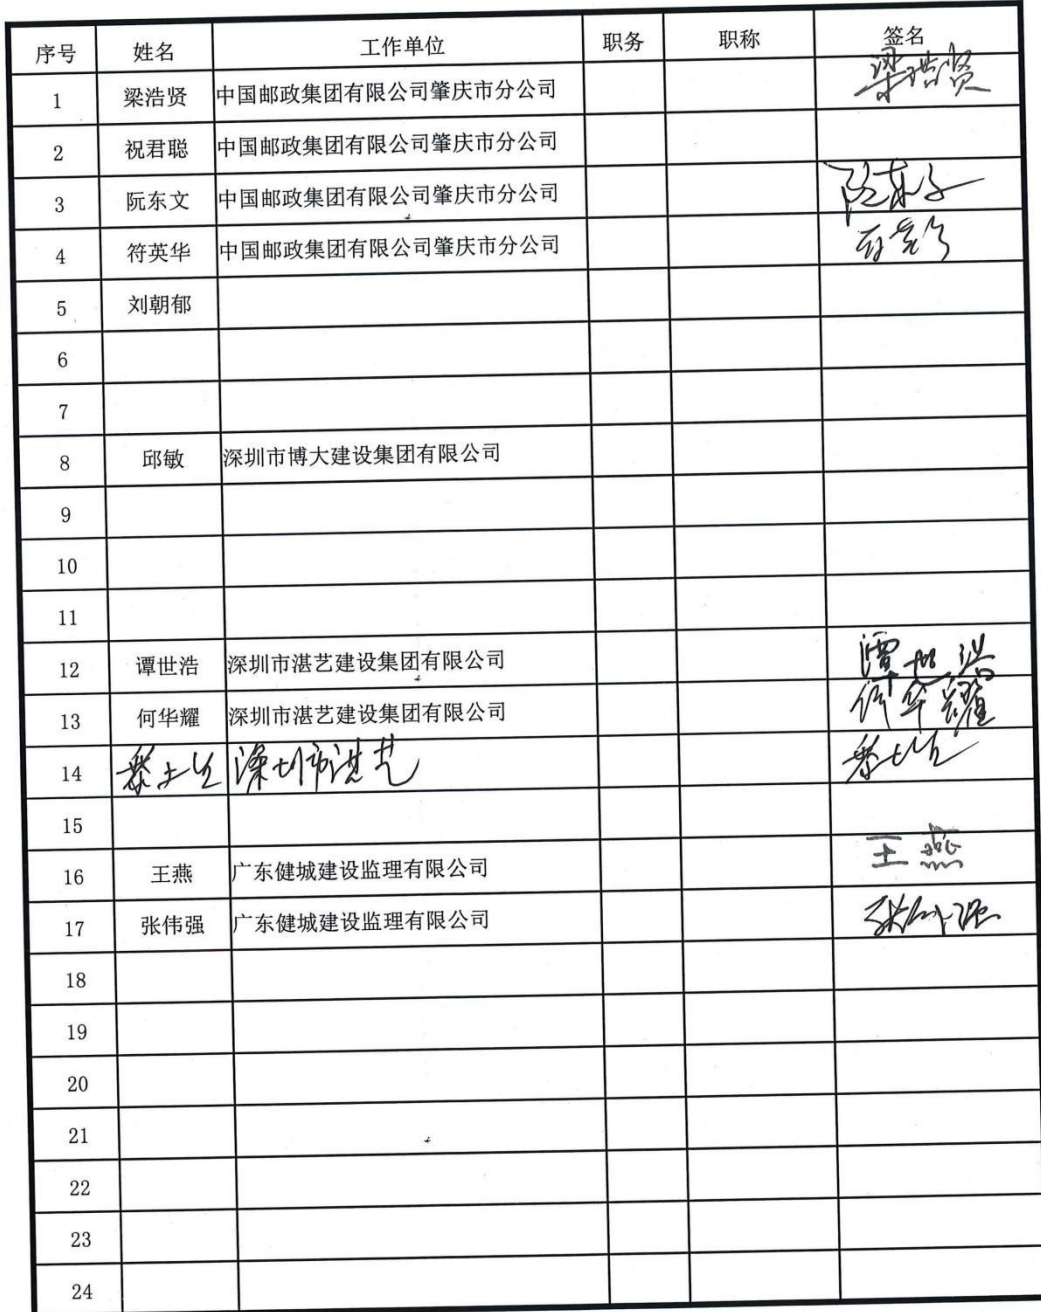 序号 姓名 工作单位 职务 职称 签名
1 梁浩贤 中国邮政集团有限公司肇庆市分公司 梁浩贤
2 祝君聪 中国邮政集团有限公司肇庆市分公司
3 阮东文 中国邮政集团有限公司肇庆市分公司 阮东文
4 符英华 中国邮政集团有限公司肇庆市分公司 符英华
5 刘朝郁
6
7
8 邱敏 深圳市博大建设集团有限公司
9
10
11
12 谭世浩 深圳市湛艺建设集团有限公司 谭世浩
13 何华耀 深圳市湛艺建设集团有限公司 何华耀
14 深圳市湛艺
15
16 王燕 广东健城建设监理有限公司 王燕
17 张伟强 广东健城建设监理有限公司 张伟强
18
19
20
21
22
23
24